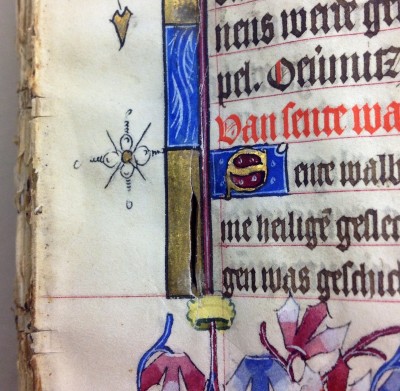 nens werre gr
pel. Oremus
Van sente wa
Sente walb
me heilige geslec
gen was geschick